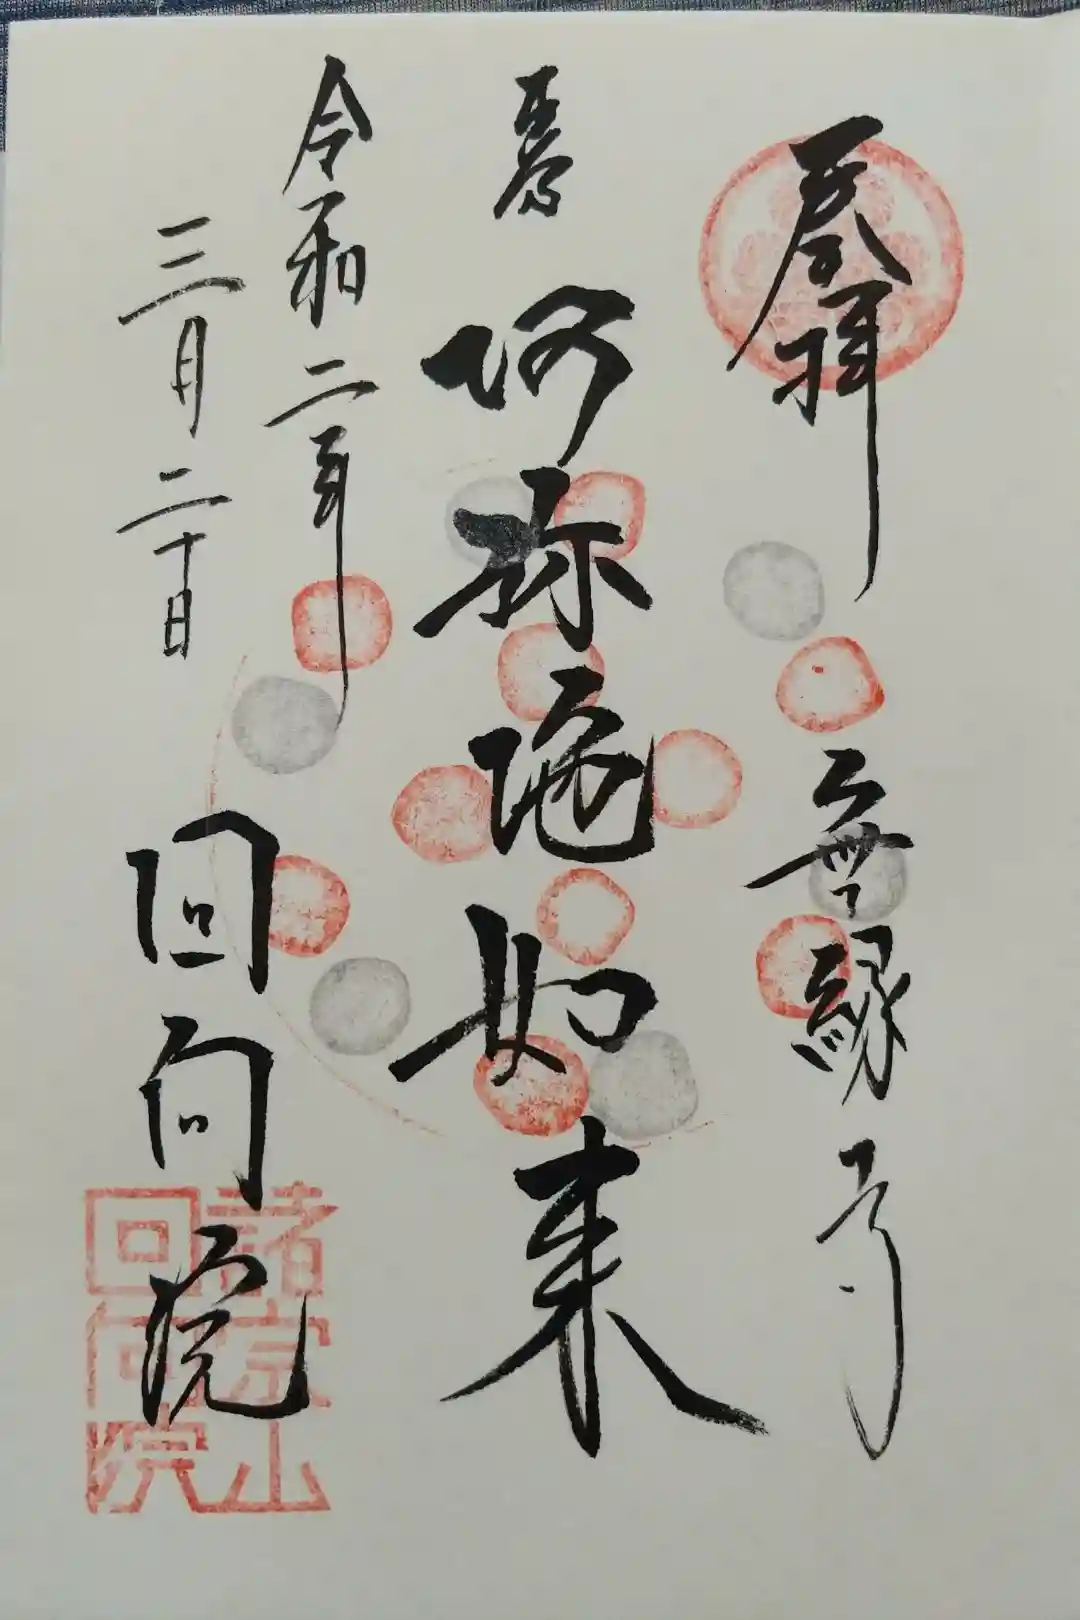 奉拝
無縁寺
阿弥陀如来
令和二年
三月二十日
回向院
諸宗山
回向院